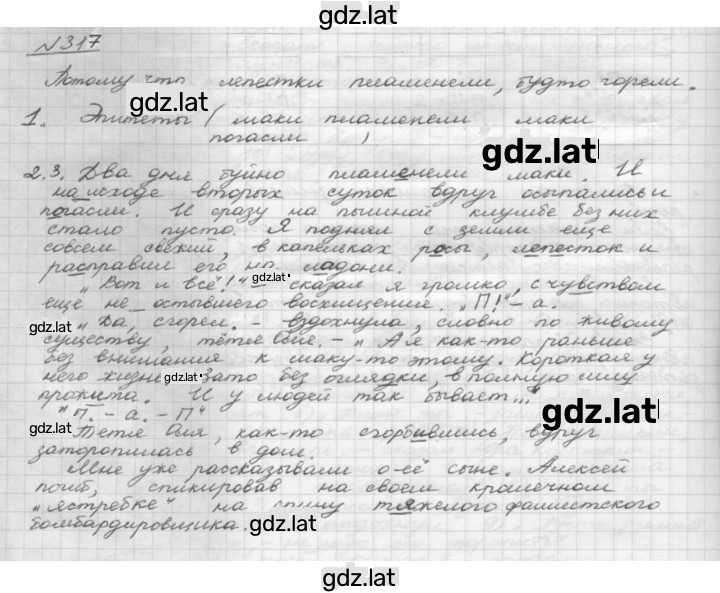 gdz.lat
N317
Потому что лепестки пламенели, будто горели.
gdz.lat
1. Эпитеты ( маки пламенели маки
погасли )
gdz.lat
2.3. Два дня буйно пламенели маки. И
на исходе вторых суток вдруг осыпались и
погасли. И сразу на пышной клумбе без них
стало пусто. Я поднял с земли еще
совсем свежий, в капельках росы, лепесток и
расправил его на ладони.
gdz.lat
„Вот и всё!" - сказал я громко, с чувством
еще не остывшего восхищения. „П!" - а.
gdz.lat
„Да, сгорел. - вздохнула, словно по живому
существу, тётя Оля. - „А я как-то раньше
без внимания к маку-то этому. Короткая у
него жизнь. Зато без оглядки, в полную силу
gdz.lat
прожита. И у людей так бывает..."
„П. - а. - П"
gdz.lat
gdz.lat
Тетя Оля, как-то сгорбившись, вдруг
заторопилась в дом.
Мне уже рассказывали о её сыне. Алексей
погиб, спикировав на своем крошечном
„ястребке" на спину тяжелого фашистского
бомбардировщика.
gdz.lat
gdz.lat